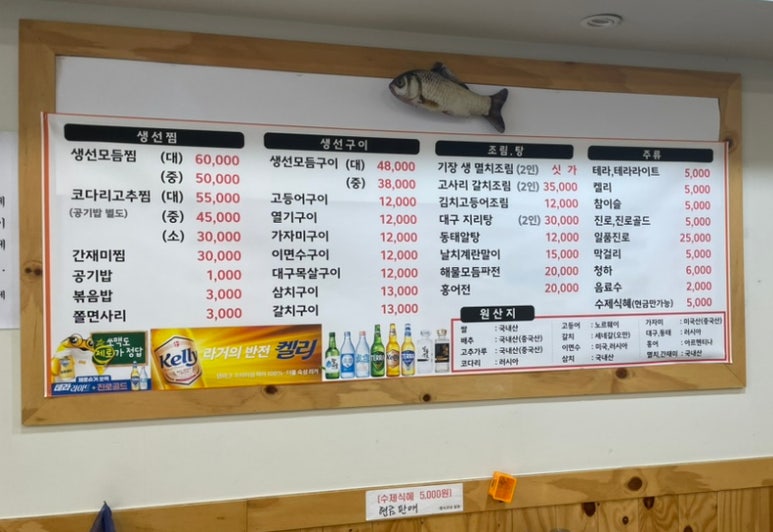 생선찜
생선모듬찜 (대) 60,000
(중) 50,000
코다리고추찜 (대) 55,000
(공기밥 별도) (중) 45,000
(소) 30,000
간재미찜 30,000
공기밥 1,000
볶음밥 3,000
쫄면사리 3,000
생선구이
생선모듬구이 (대) 48,000
(중) 38,000
고등어구이 12,000
열기구이 12,000
가자미구이 12,000
이면수구이 12,000
대구목살구이 12,000
삼치구이 13,000
갈치구이 13,000
조림,탕
기장 생 멸치조림 (2인) 싯 가
고사리 갈치조림 (2인) 35,000
김치고등어조림 12,000
대구 지리탕 (2인) 30,000
동태알탕 12,000
날치계란말이 15,000
해물모듬파전 20,000
홍어전 20,000
주류
테라,테라라이트 5,000
켈리 5,000
참이슬 5,000
진로,진로골드 5,000
일품진로 25,000
막걸리 5,000
청하 6,000
음료수 2,000
수제식혜(현금만가능) 5,000
원산지
쌀 : 국내산
배추 : 국내산(중국산)
고추가루 : 국내산(중국산)
코다리 : 러시아
고등어 : 노르웨이
갈치 : 세네갈(오만)
이면수 : 미국,러시아
삼치 : 국내산
가자미 : 미국산(중국산)
대구,동태 : 러시아
홍어 : 아르헨티나
멸치,간재미 : 국내산
쏘맥도
제로가 정답
테라 라이트 + 진로골드
Kelly
라거의 반전 켈리
TERRA
(수제식혜 5,000원)
현금판매